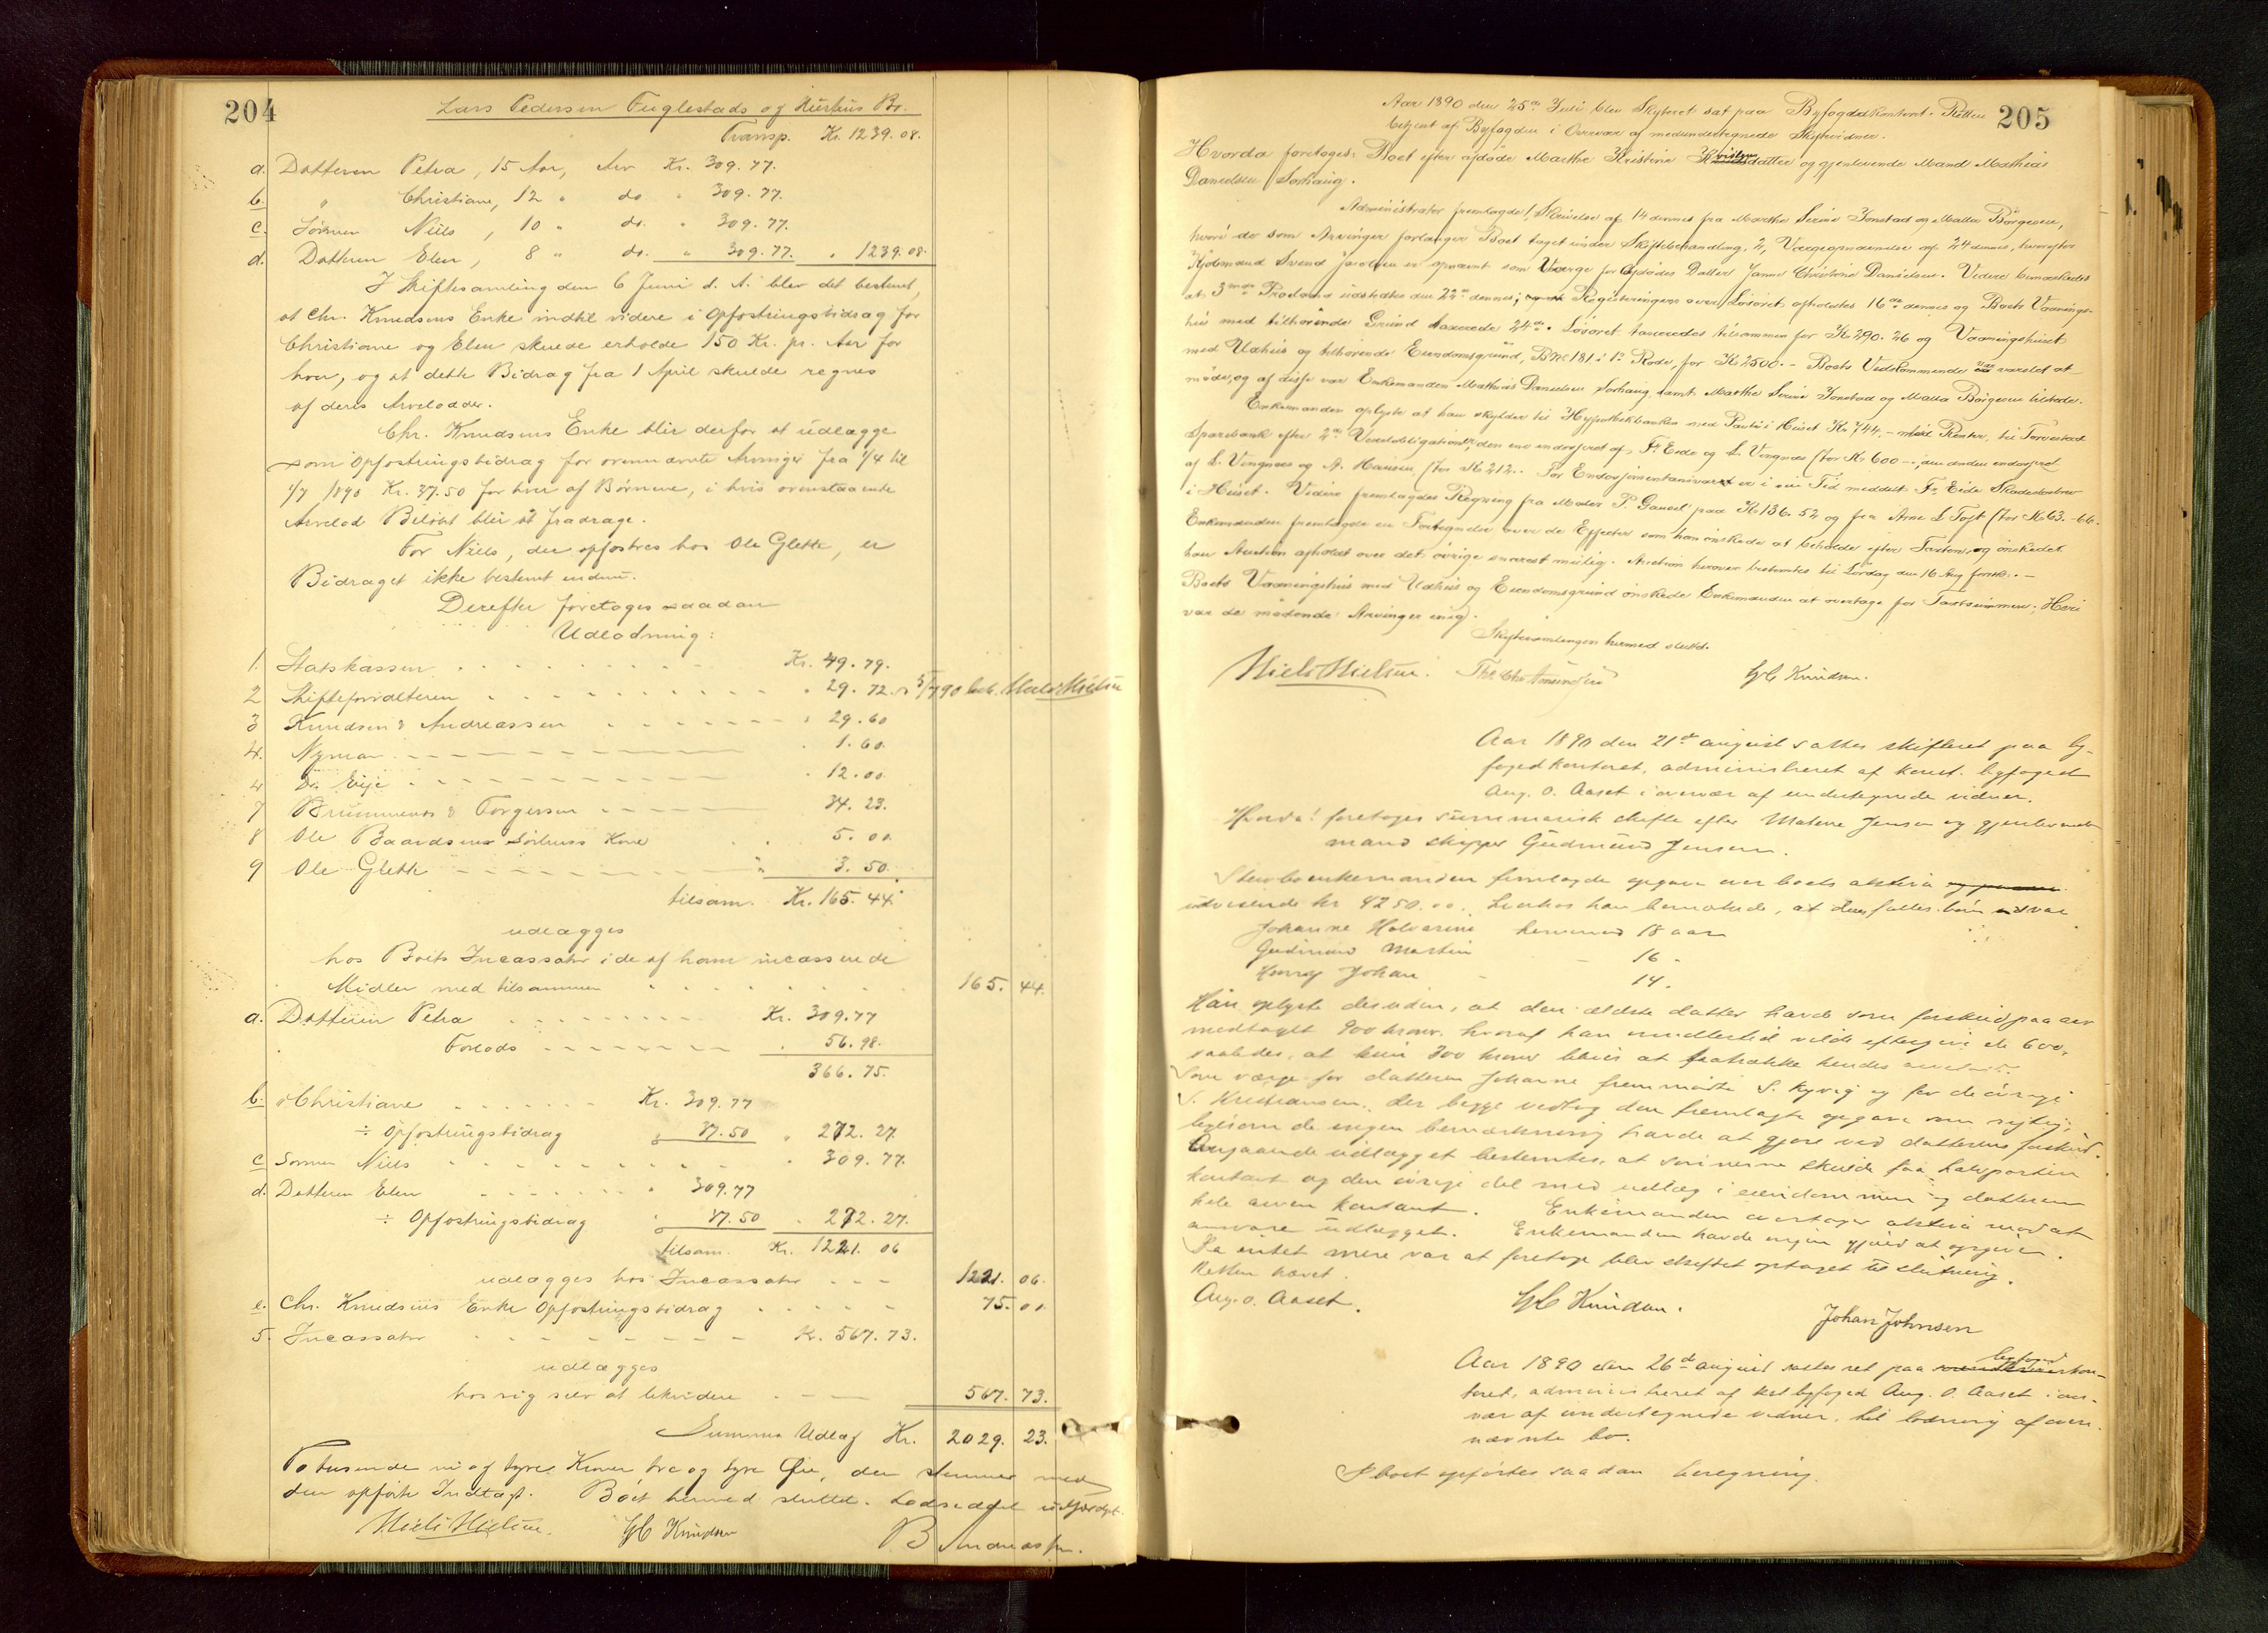 204
Lars Pedersen Fuglestads og Hustrus Bo.
Transp. Kr. 1239.08.
a. Datteren Petra, 15 Aar, Arv Kr. 309.77.
b. " Christiane, 12 " do " 309.77.
c. Sønnen Niels, 10 " do. " 309.77.
d. Datteren Elen, 8 " do. " 309.77. " 1239.08.
I Skiftesamling den 6 Juni d. A. blev det bestemt,
at Chr. Knudsens Enke indtil videre i Opfostringsbidrag for
Christiane og Elen skulde erholde 150 Kr. pr. Aar for
hver, og at dette Bidrag fra 1 April skulde regnes
af deres Arvelodder.
Chr. Knudsens Enke blir derfor at udlægge
som Opfostringsbidrag for ovennævnte Arvinger fra 1/4 til
1/7 1890 Kr. 37.50 for hver af Børnene, i hvis ovenstaaende
Arvelod Beløbet blir at fradrage.
For Niels, der opfostres hos Ole Glette, er
Bidraget ikke bestemt endnu.
Derefter foretoges saadan
Udlodning:
1. Statskassen Kr. 49.79.
2 Skifteforvalteren " 29.72. 5/7 90 bet. Niels Nielsen
3 Knudsen & Andreassen " 29.60
4. Nyman " 1.60.
4 Dr. Eije " 12.00
7 Brummenæs & Torgersen 34.23.
8 Ole Baardsens Sørhuss Kone 5.00
9 Ole Glette " 3.50.
tilsam. Kr. 165.44.
udlægges
hos Boets Incassator i de af ham incasserede
Midler med tilsammen 165.44.
a. Datteren Petra Kr. 309.77
Forlods " 56.98.
366.75.
b. " Christiane Kr. 309.77
÷ Opfostringsbidrag " 37.50 " 272.27.
c Sønnen Niels " 309.77.
d. Datteren Elen " 309.77
÷ Opfostringsbidrag " 37.50 " 272.27.
tilsam. Kr. 1221.06
udlægges hos Incassator 1221.06.
e. Chr. Knudsens Enke Opfostringsbidrag 75.00
5. Incassator Kr. 567.73.
udlægges
hos sig selv at likvidere 567.73.
Summa Udlæg Kr. 2029.23.
To tusende ni og tyve Kroner tre og tyve Øre, der stemmer med
den opførte Indtægt. Boet hermed sluttet. Lodseddel udfærdiget.
Niels Nielsen. GC Knudsen B Andreassen.
205
Aar 1890 den 25de Juli blev Skifteret sat paa Byfogedkontoret. Retten
betjent af Byfogden i Overvær af medundertegnede Skiftevidner.
Hvorda foretoges: Boet efter afdøde Marthe Kristine datter og gjenlevende Mand Mathias
Danielsen Sørhaug.
Administrator fremlagde 1, Skrivelse af 14 dennes fra Marthe Serine Jonstad og Malla Børgesen,
hvori de som Arvinger forlanger Boet taget under Skiftebehandling, 2, Værgeopnævnelse af 24 dennes, hvorefter
Kjøbmand Svend Jacobsen er opnævnt som Værge for Afdødes Datter Janne Christine Danielsen. Videre bemærkedes
at 3 Proclama udstedtes den 22de dennes; Registreringen over Løsøret afholdtes 16de dennes og Boets Vaanings-
hus med tilhørende Grund taxerede 24de. Løsøret taxeredes tilsammen for Kr 290.26 og Vaaningshuset
med Udhus og tilhørende Eiendomsgrund, B No 181 i 1ste Rode, for Kr 2500. – Boets Vedkommende var varslet at
møde, og af disse var Enkemanden Mathias Danielsen Sørhaug samt Marthe Serine Jonstad og Malla Børgesen tilstede.
Enkemanden oplyste at han skylder til Hypothekbanken med Pant i Huset Kr 744, – med Renter, til Torvestad
Sparebank efter 2de Vexelobligationer, den ene endosseret af Fr. Eide og L. Vengnæs stor Kr 600 –, den anden endosseret
af L. Vengnæs og A. Hansen, stor Kr 212.. For Endossementansvaret er i sin Tid meddelt Fr. Eide Skadesløsbrev
i Huset. Videre fremlagdes Regning fra Maler P. Gausel paa Kr 136.52 og fra Arne L Toft stor Kr 63.66.
Enkemanden fremlagde en Fortegnelse over de Effecter som han ønskede at beholde efter Taxten, og ønskedet
han Auction afholdt over det øvrige snarest mulig. Auction herover bestemtes til Lørdag den 16 Aug førstk. –
Boets Vaaningshus med Udhus og Eiendomsgrund ønskede Enkemanden at overtage for Taxtsummen; Heri
var de mødende Arvinger enig.
Skiftesamlingen hermed sluttet.
Niels Nielsen. Th. Chr. Amundsen GC Knudsen.
Aar 1890 den 21de august sattes skifteret paa by-
fogedkontoret, administreret af konst. byfoged
Aug. O. Aaset i overvær af undertegnede vidner.
Hvorda: foretoges summarisk skifte efter Malene Jensen og gjenlevende
mand skipper Gudmund Jensen.
Sterboenkemanden fremlagde opgave over boets aktiva
udvisende kr 4250.00. Likesom han bemærkede, at deres fælles børn var
Johanne Halvarine henimod 18 aar
Gudmund Martin – 16 –
Henry Johan – 14.
Han oplyste desuden, at den ældste datter havde som forskud paa arv
modtaget 900 kroner hvoraf han imidlertid vilde eftergive de 600,
saaledes, at kun 300 kroner bliver at fratrække hendes
Som værge for datteren Johanne fremmødte S. Kyvig og for de øvrige
S. Kristiansen, der begge vedtog den fremlagte opgave som rigtig;
ligesom de ingen bemærkning havde at gjøre ved datterens forskud.
Angaaende udlægget bestemtes, at sønnerne skulde faa halvparten
kontant og den øvrige del med udlæg i eiendommen og datteren
hele arven kontant. Enkemanden overtager aktiva mod at
ansvare udlægget. Enkemanden havde ingen gjæld at opgive.
Da intet mere var at foretage blev skiftet optaget til slutning.
Retten hævet.
Aug. O. Aaset. GC Knudsen. Johan Johnsen
Aar 1890 den 26de august sattes ret paa byfogedkon-
toret, administreret af kst byfoged Aug. O. Aaset i over-
vær af undertegnede vidner, til slutning af oven-
nævnte bo.
I boet opførtes saadan beregning.